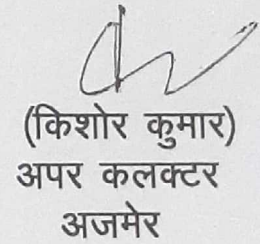 (किशोर कुमार)
अपर कलक्टर
अजमेर